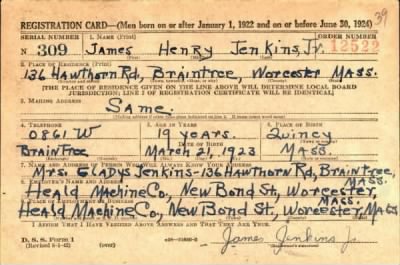 39
REGISTRATION CARD—(Men born on or after January 1, 1922 and on or before June 30, 1924)
SERIAL NUMBER 1. NAME (Print) ORDER NUMBER
N 309 James Henry Jenkins, Jr. 12522
2. PLACE OF RESIDENCE (Print)
136 Hawthorn Rd, Braintree, Worcester Mass.
[THE PLACE OF RESIDENCE GIVEN ON THE LINE ABOVE WILL DETERMINE LOCAL BOARD
JURISDICTION; LINE 2 OF REGISTRATION CERTIFICATE WILL BE IDENTICAL]
3. MAILING ADDRESS
Same.
4. TELEPHONE 5. AGE IN YEARS 6. PLACE OF BIRTH
0861 W 19 years. Quincy
DATE OF BIRTH
Braintree March 21, 1923 Mass
7. NAME AND ADDRESS OF PERSON WHO WILL ALWAYS KNOW YOUR ADDRESS
Mrs. Gladys Jenkins-136 Hawthorn Rd, Braintree,
Mass.
8. EMPLOYER'S NAME AND ADDRESS
Heald Machine Co, New Bond St, Worcester,
Mass.
9. PLACE OF EMPLOYMENT OR BUSINESS
Heald Machine Co, New Bond St, Worcester, Mass
I AFFIRM THAT I HAVE VERIFIED ABOVE ANSWERS AND THAT THEY ARE TRUE.
D. S. S. Form 1
James Jenkins Jr.